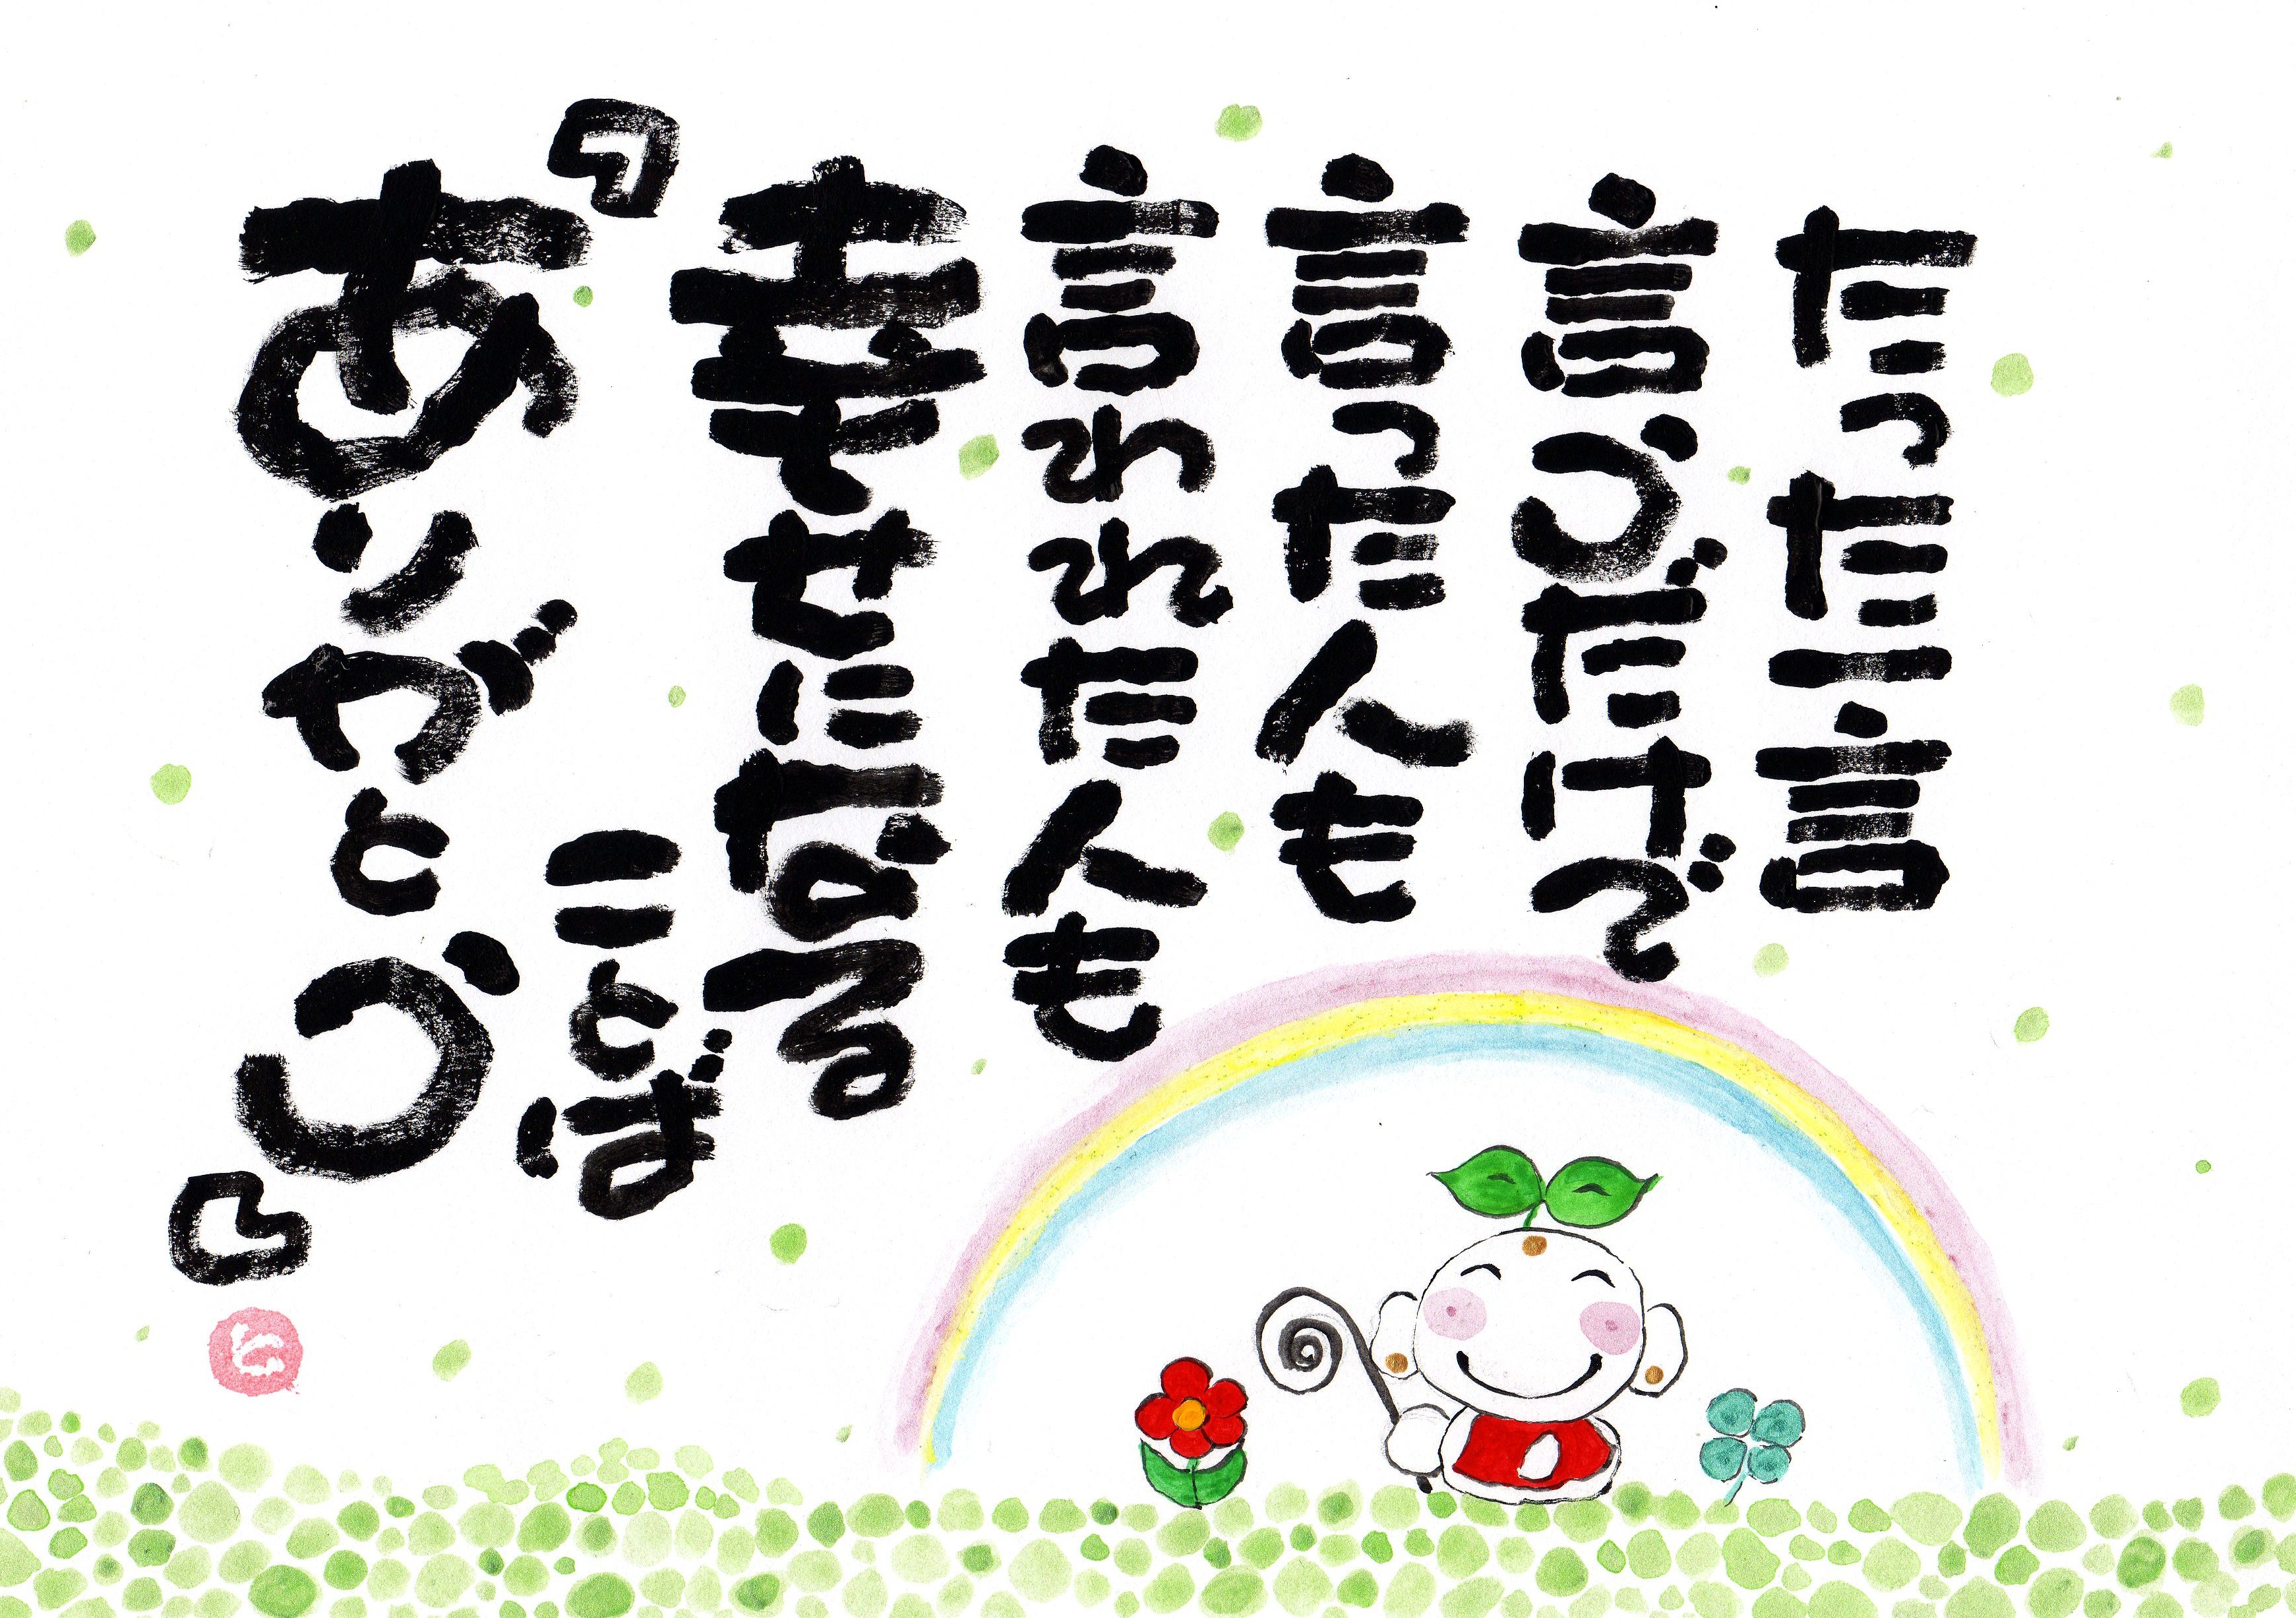 たった一言
言うだけで
言った人も
言われた人も
幸もせになる
ことば
『ありがとう』
と